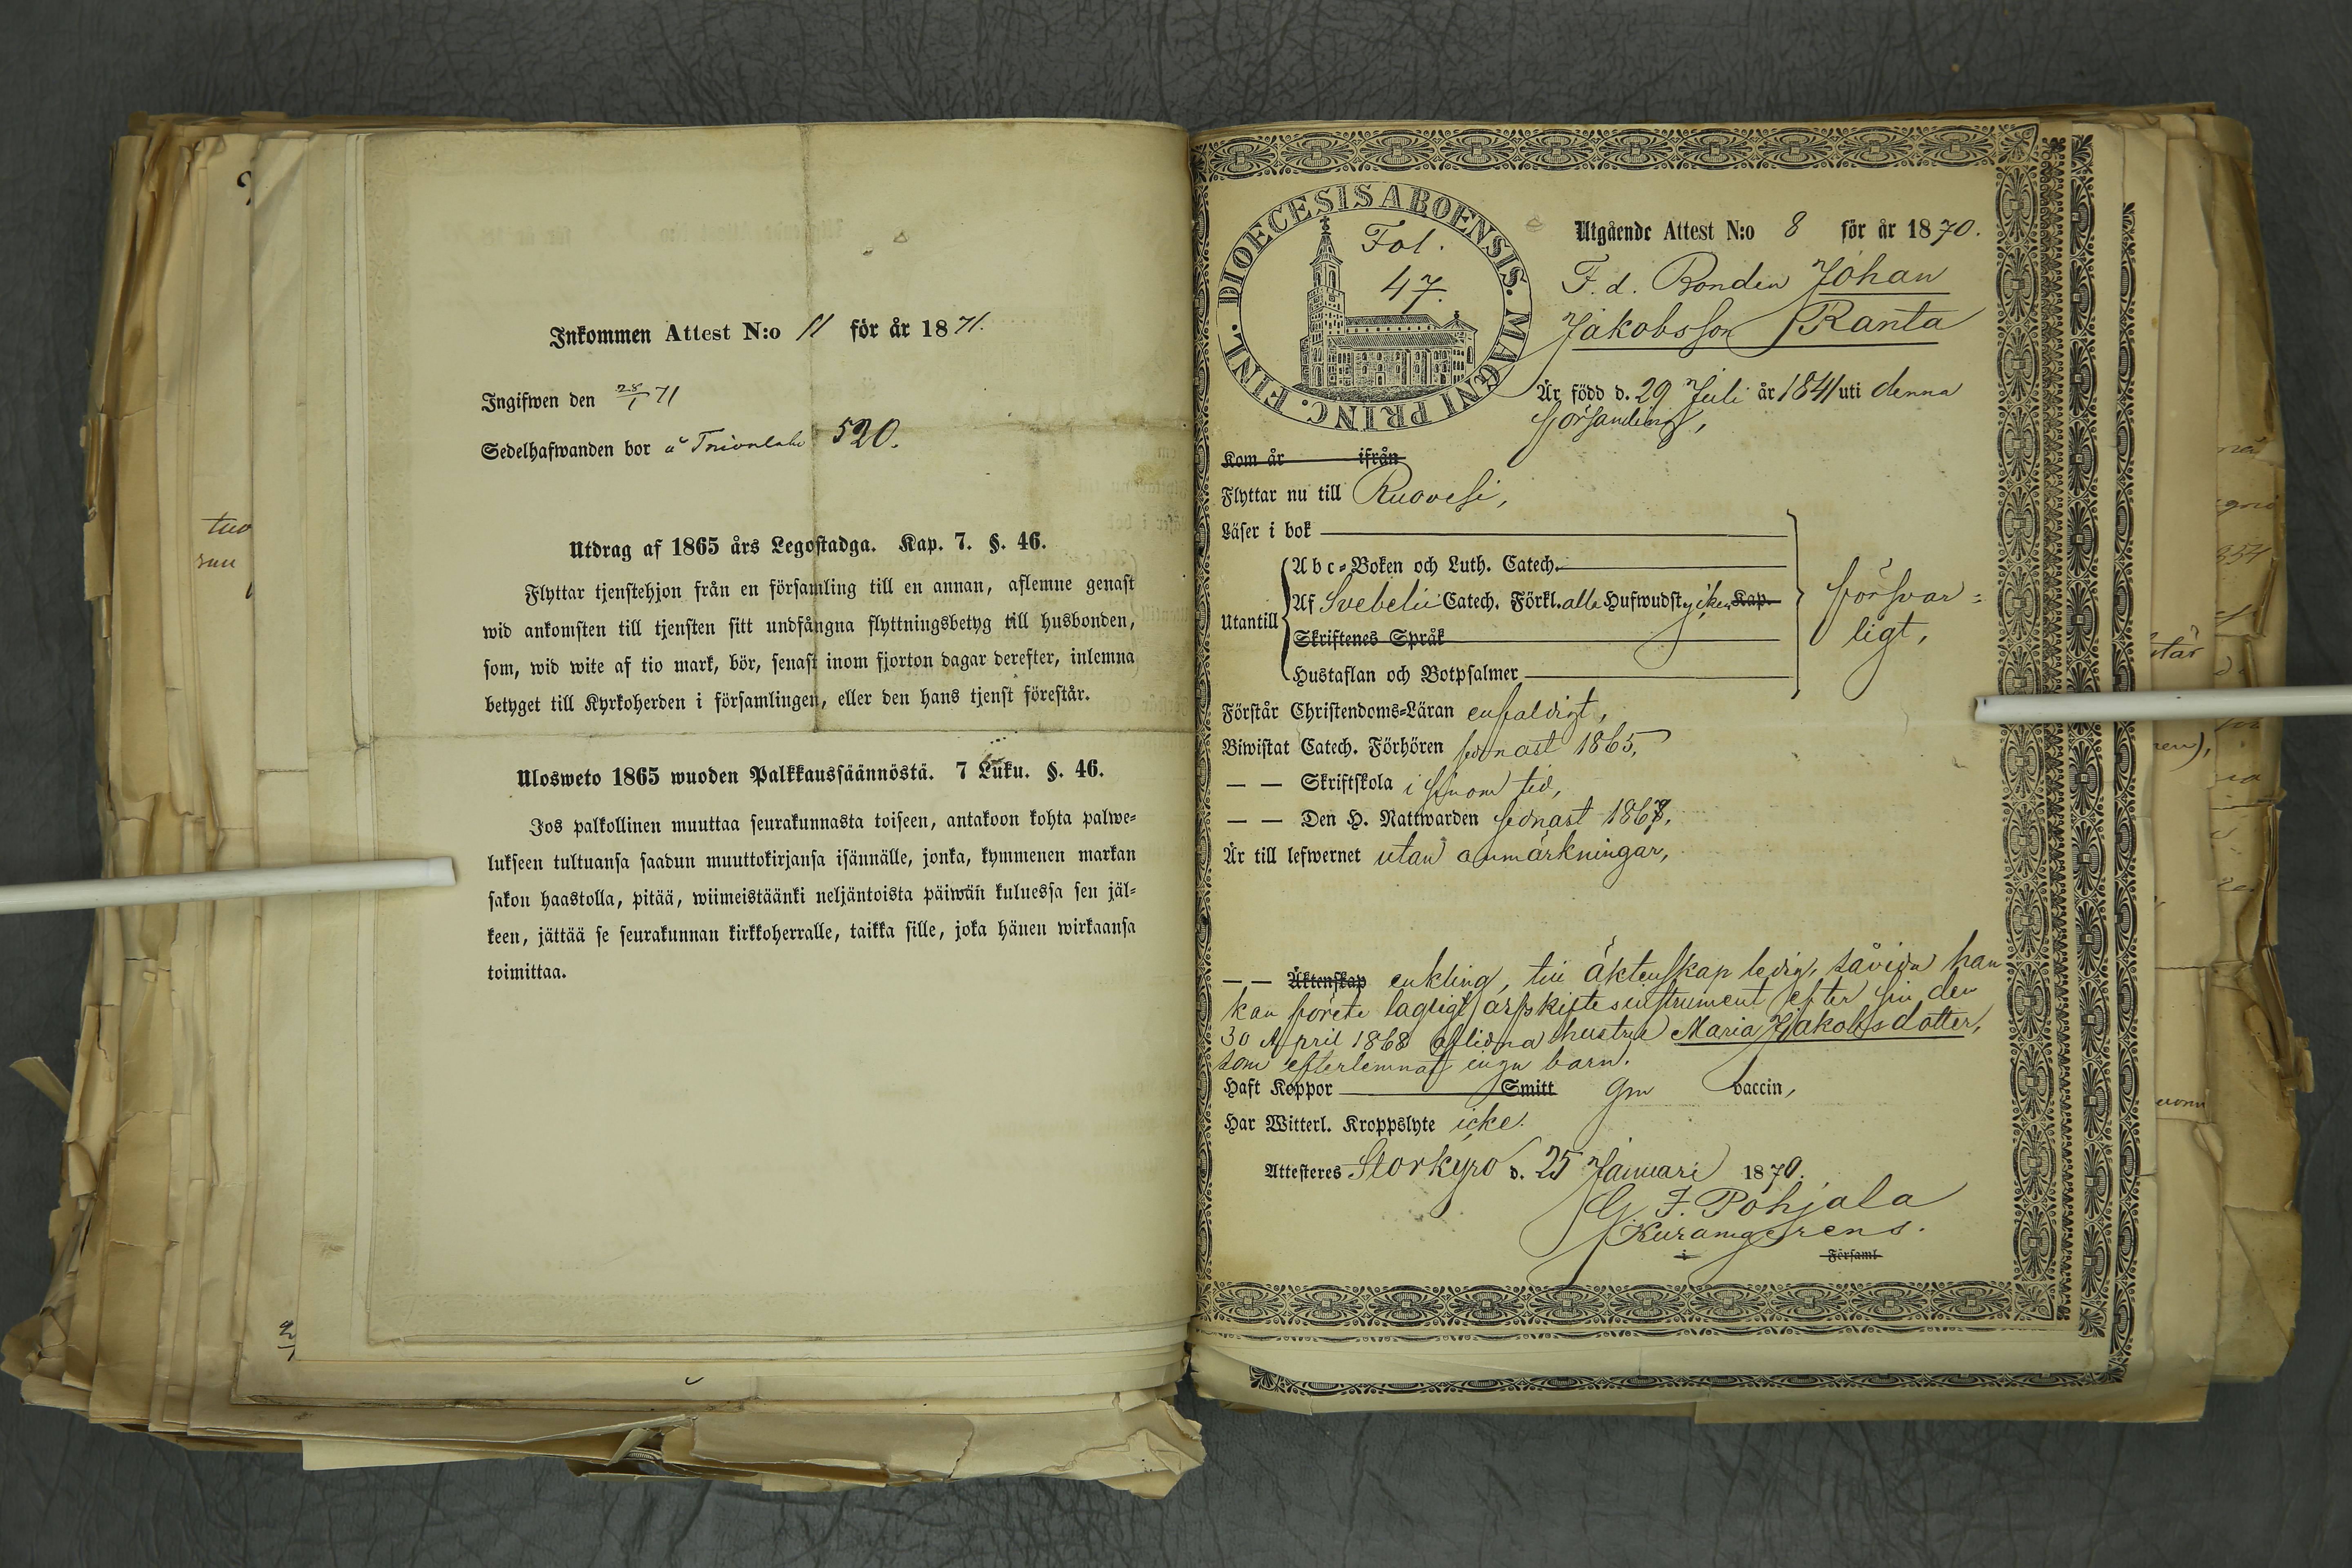 Inkommen Attest N:o 11 för år 1871.
Ingifwen den 28/1 71
Sedelhafwanden bor å 520.
Utdrag af 1865 års Legostadga. Kap. 7. §. 46.
Flyttar tjenstehjon från en församling till en annan, aflemne genast
wid ankomsten till tjensten sitt undfångna flyttningsbetyg till husbonden,
som, wid wite af tio mark, bör, senast inom fjorton dagar derefter, inlemna
betyget till Kyrkoherden i församlingen, eller den hans tjenst förestår.
Ulosweto 1865 wuoden Palkkaussäännöstä. 7 Luku. §. 46.
Jos palkollinen muuttaa seurakunnasta toiseen, antakoon kohta palwe-
lukseen tultuansa saadun muuttokirjansa isännälle, jonka, kymmenen markan
sakon haastolla, pitää, wiimeistäänki neljäntoista päiwän kuluessa sen jäl-
keen, jättää se seurakunnan kirkkoherralle, taikka sille, joka hänen wirkaansa
toimittaa.
DIOECESIS ABOENSIS. MAGNI PRINC. FINL.
Fol.
47.
Utgående Attest N:o 8 för år 1870.
F. d. Bonden Johan
Jakobsson Ranta
Är född d. 29 Juli år 1841 uti denna
församling,
Kom år ifrån
Flyttar nu till Ruovesi,
Läser i bok
Abc-Boken och Luth. Catech.
Utantill
Af Svebelii Catech. Förkl. alla Hufwudstycken Kap.
Skriftenes Språk
Hustaflan och Botpsalmer
försvar-
ligt,
Förstår Christendoms-Läran enfaldigt,
Biwistat Catech. Förhören sednast 1865,
— — Skriftskola i sinom tid,
— — Den H. Nattwarden sednast 1867,
Är till lefwernet utan anmärkningar,
— — Äktenskap enkling, till äktenskap ledig, såvida han
kan förete lagligt arfskiftesinstrument efter sin den
30 April 1868 aflidna hustru Maria Jakobsdotter,
som efterlemnat inga barn.
Haft Koppor Smitt gm vaccin,
Har Witterl. Kroppslyte icke.
Attesteres Storkyro d. 25 Januari 1870.
G. F. Pohjala
Kuramgerens.
i Församl